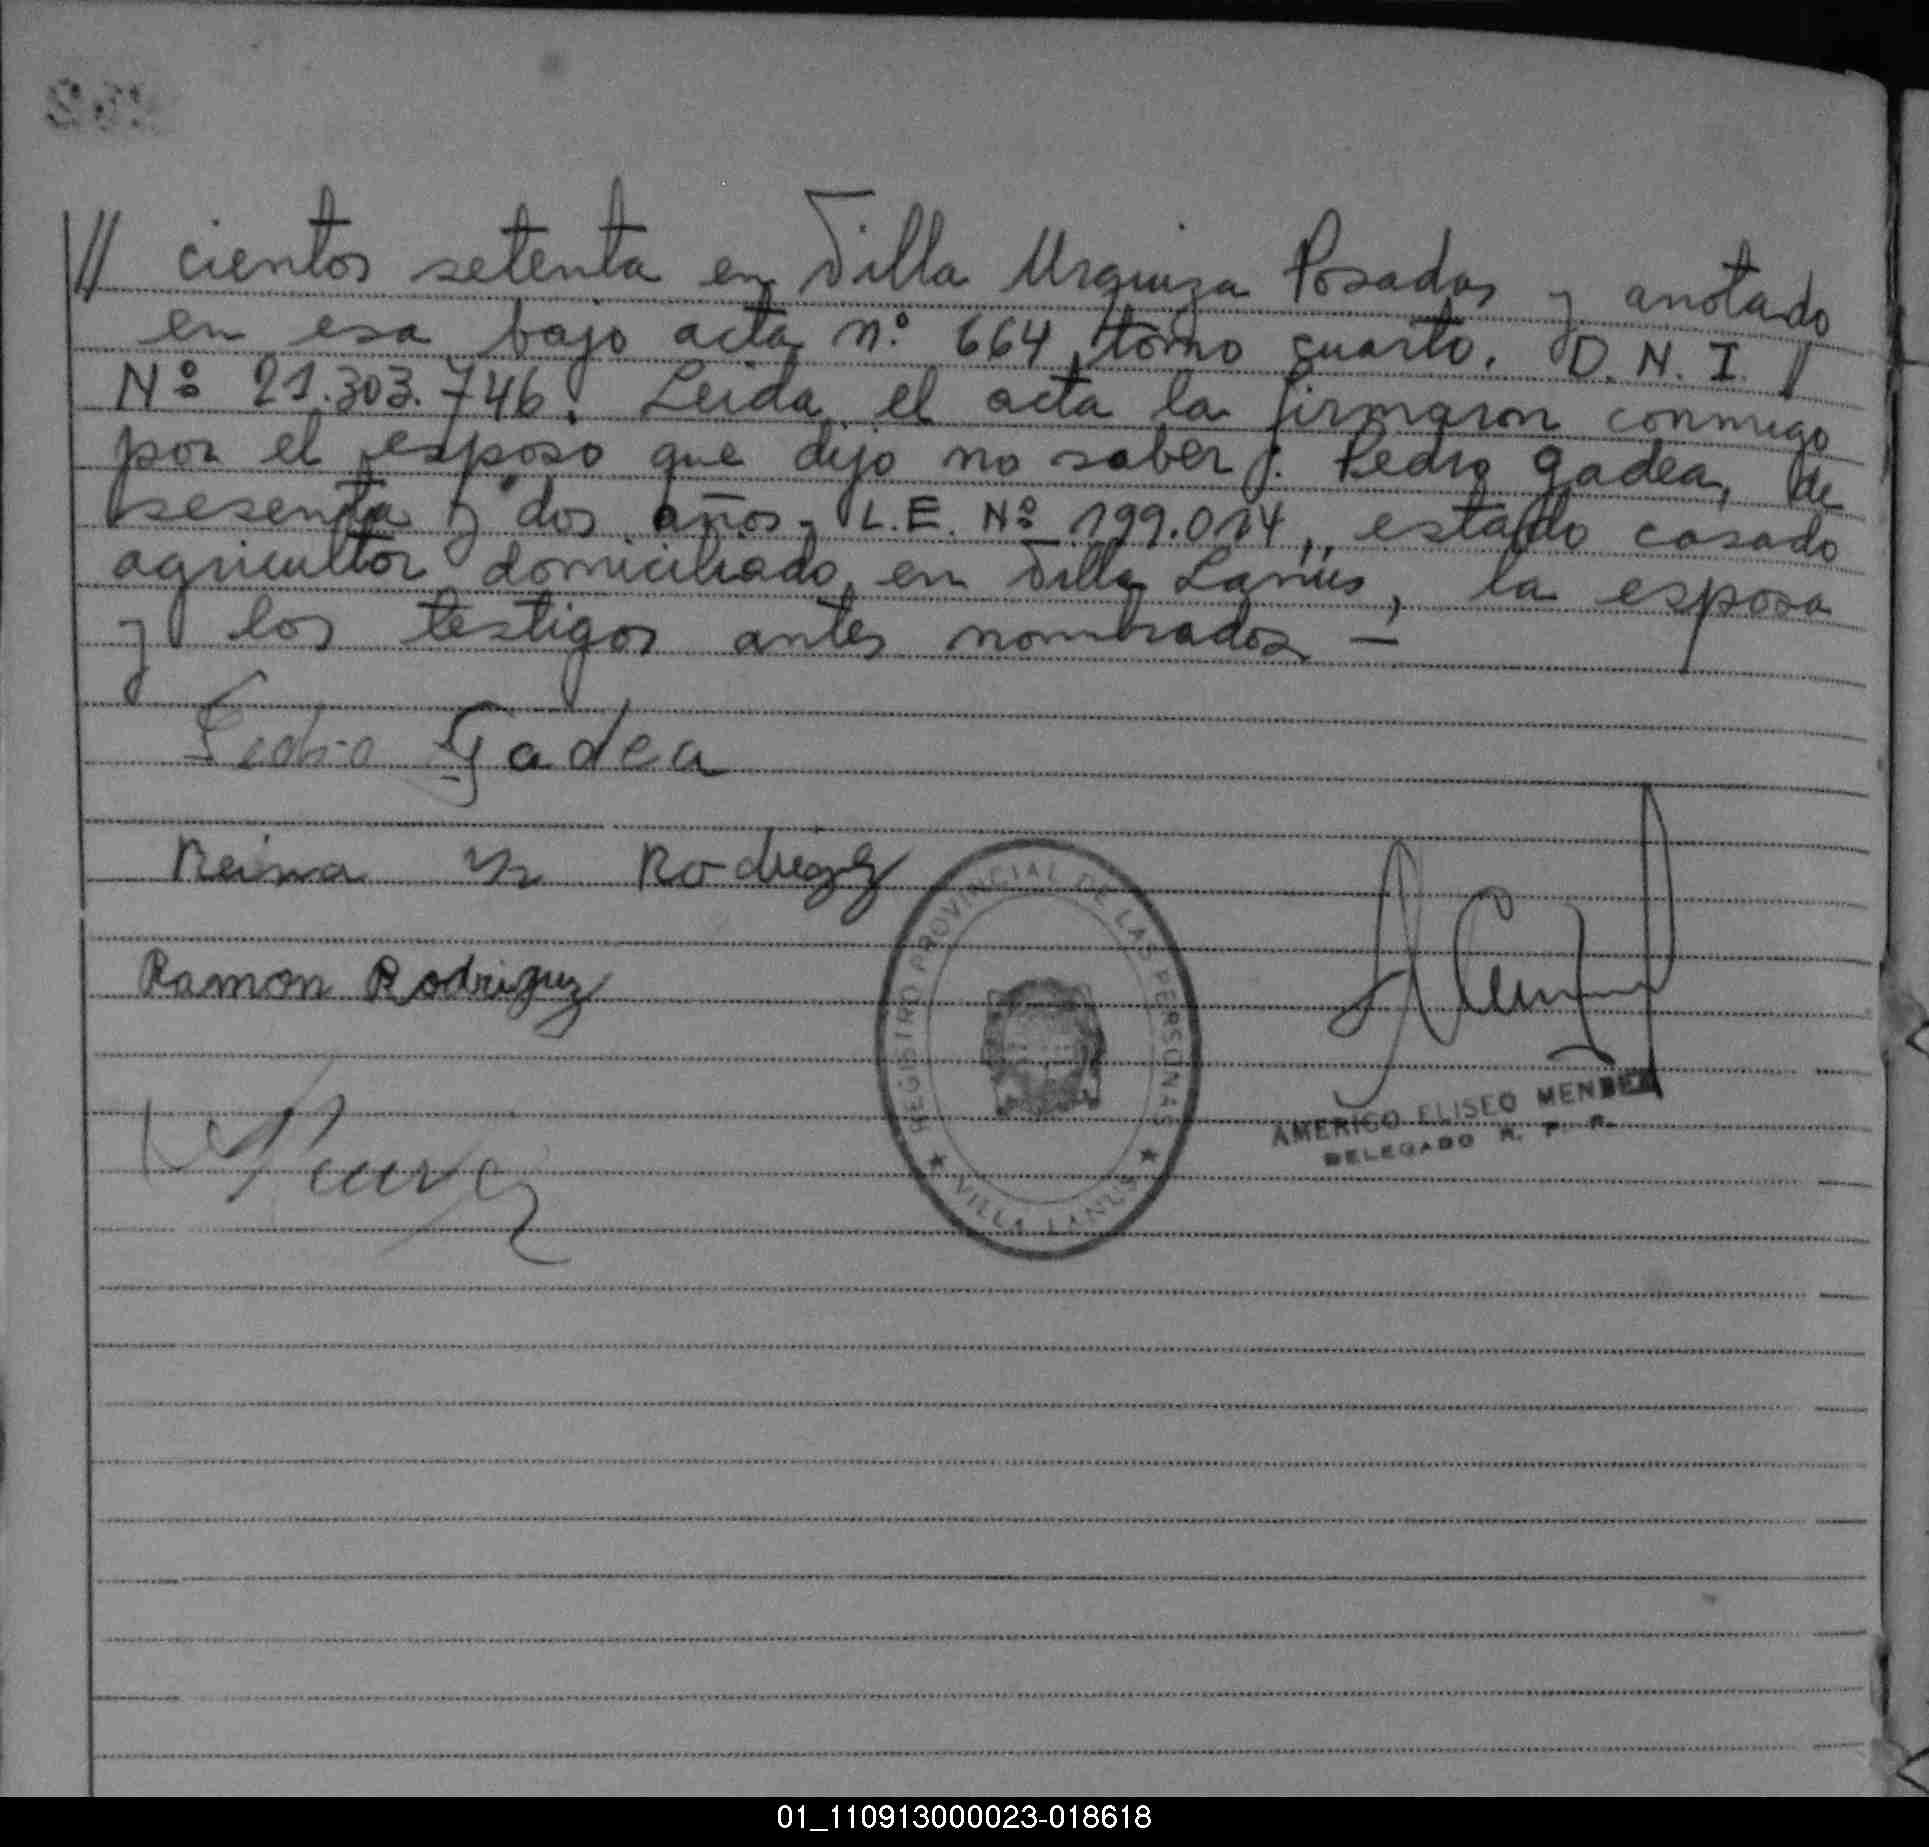 // cientos setenta en Villa Urquiza Posadas y anotado
en esa bajo acta n° 664, tomo cuarto. D.N.I. /
Nº 21.303.746. Leida el acta la firmaron conmigo
por el esposo que dijo no saber: Pedro Gadea, de
sesenta y dos años, L.E. Nº 199.014, estado casado
agricultor domiciliado en Villa Lanús, la esposa
y los testigos antes nombrados —
Pedro Gadea
Reina
Ramon Rodriguez
REGISTRO PROVINCIAL DE LAS PERSONAS
★ VILLA LANUS ★
AMERICO ELISEO MENDEZ
DELEGADO R. P. P.
01_110913000023-018618